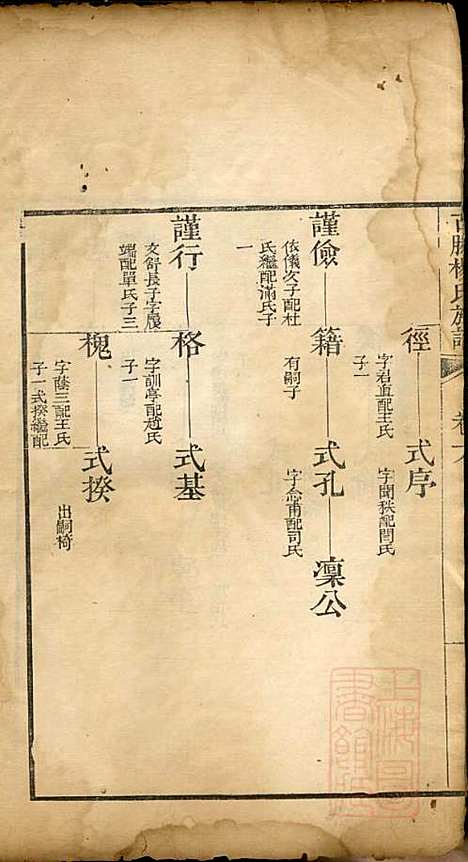 徑
字君直配王氏
子一
式序
字聞秩配閆氏
謹儉
依儀次子配杜
氏繼配滿氏子
一
籍
有嗣子
式孔
字念甫配司氏
凜公
謹行
支舒長子字履
端配單氏子三
格
字訓亭配趙氏
子一
式基
槐
字蔭三配王氏
子一式揆繼配
式揆
出嗣椅
上海圖書館藏